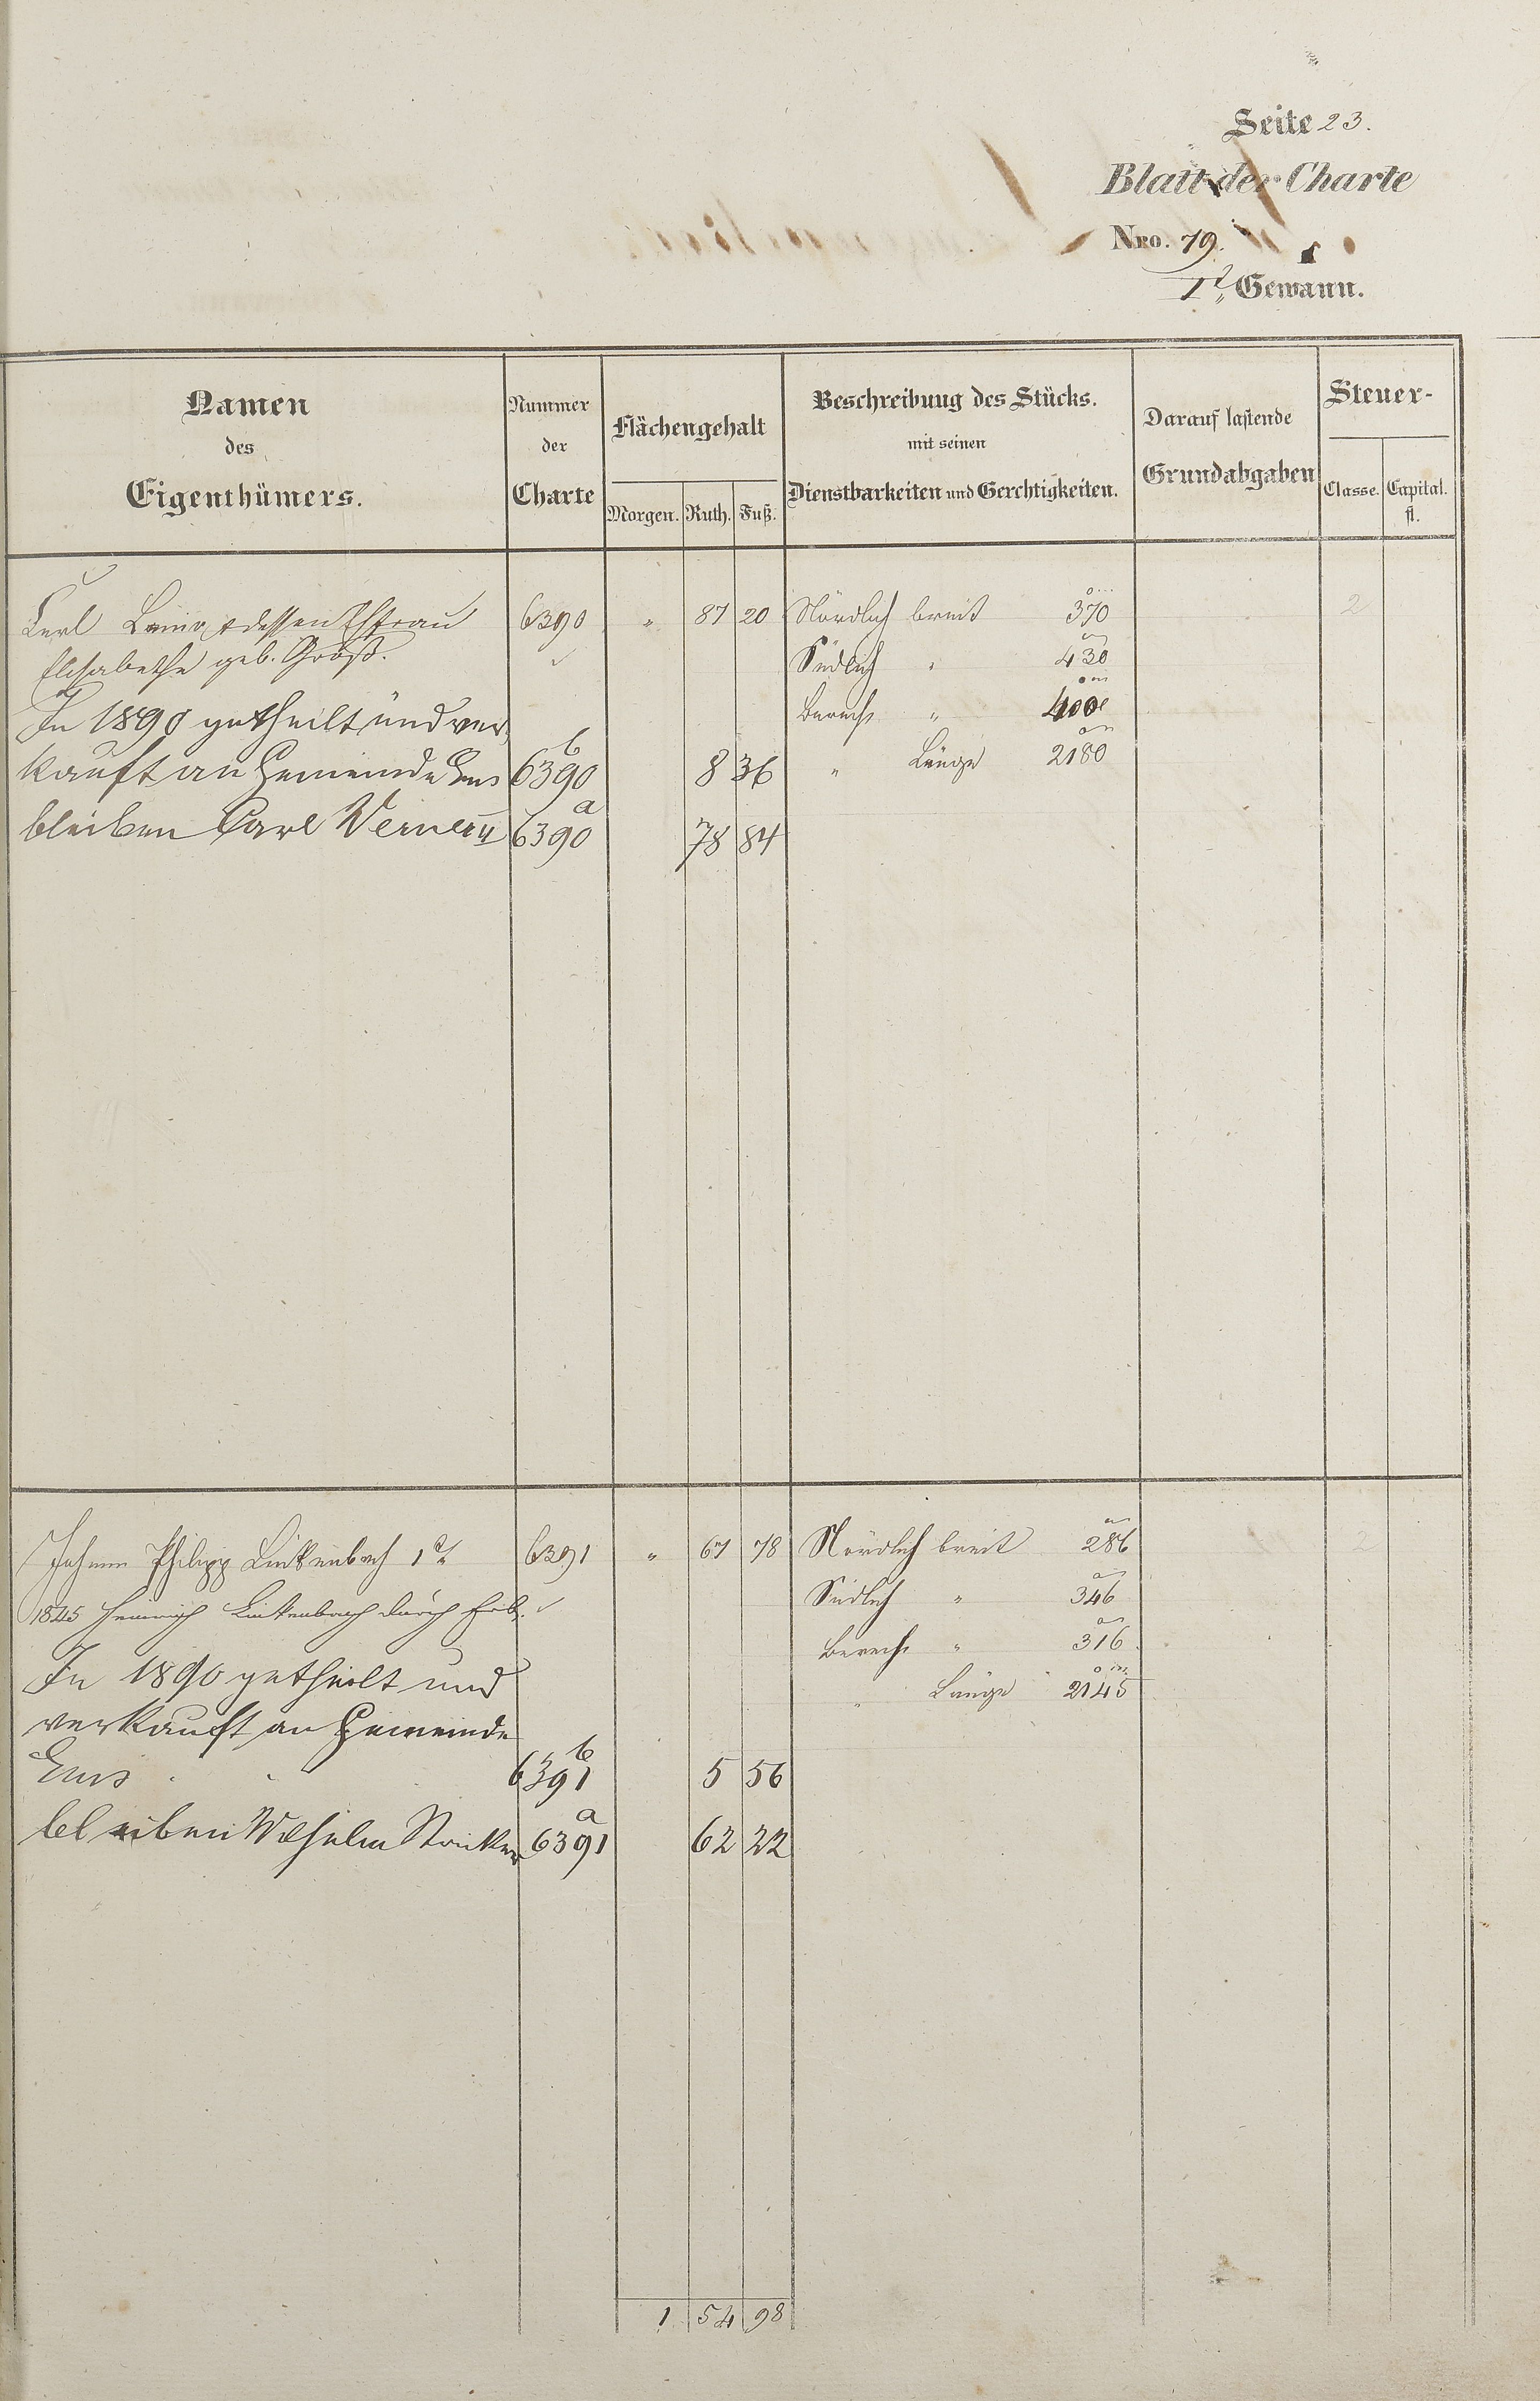 Seite 23.
Blatt der Charte
Nro. 79.
1t Gewann.
Namen des Eigenthümers.
Nummer der Charte
Flächengehalt
Morgen. Ruth. Fuß.
Beschreibung des Stücks. mit seinen Dienstbarkeiten und Gerchtigkeiten.
Darauf lastende Grundabgaben
Steuer-
Classe. Capital. fl.
Carl & dessen Ehfrau 6390 " 87 20 Nördlich breit 370 2
Elisabethe geb. Groß. Südlich " 430
In 1890 getheilt und ver- Berech. " 400
kauft an Gemeinde Ems 6390 b 8 36 " Länge 2180
bleiben Carl Werner II 6390 a 78 84
Johann Philipp Linkenbach 1r 6391 " 67 78 Nördlich breit 286 2
1845 Heinrich Linkenbach durch Erb. Südlich " 346
In 1890 getheilt und Berech. " 316
verkauft an Gemeinde " Länge 2145
Ems 6391 b 5 56
bleiben Wilhelm 6391 a 62 22
1 54 98